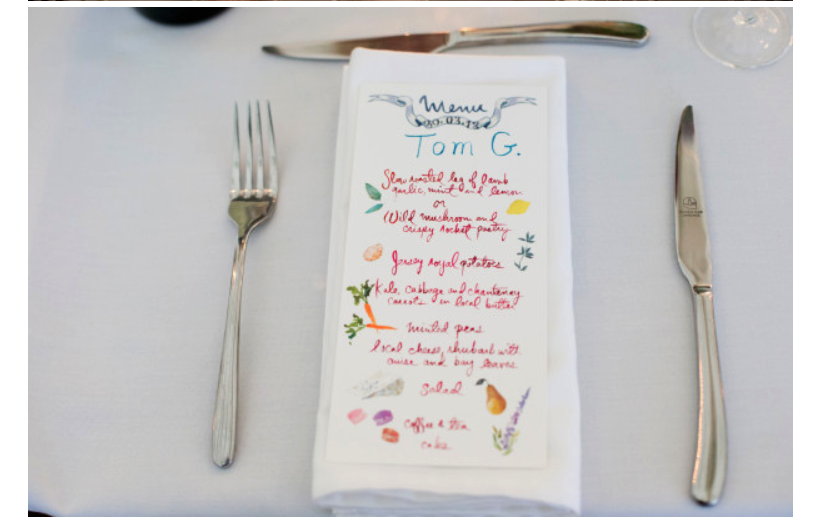 Menu
30.03.13
Tom G.
Slow roasted leg of lamb
garlic, mint and lemon
or
Wild mushroom and
crispy rocket pastry
Jersey royal potatoes
Kale, cabbage and chantenay
carrots in local butter
minted peas
local cheese, rhubarb with
anise and bay leaves
salad
coffee & tea
cake